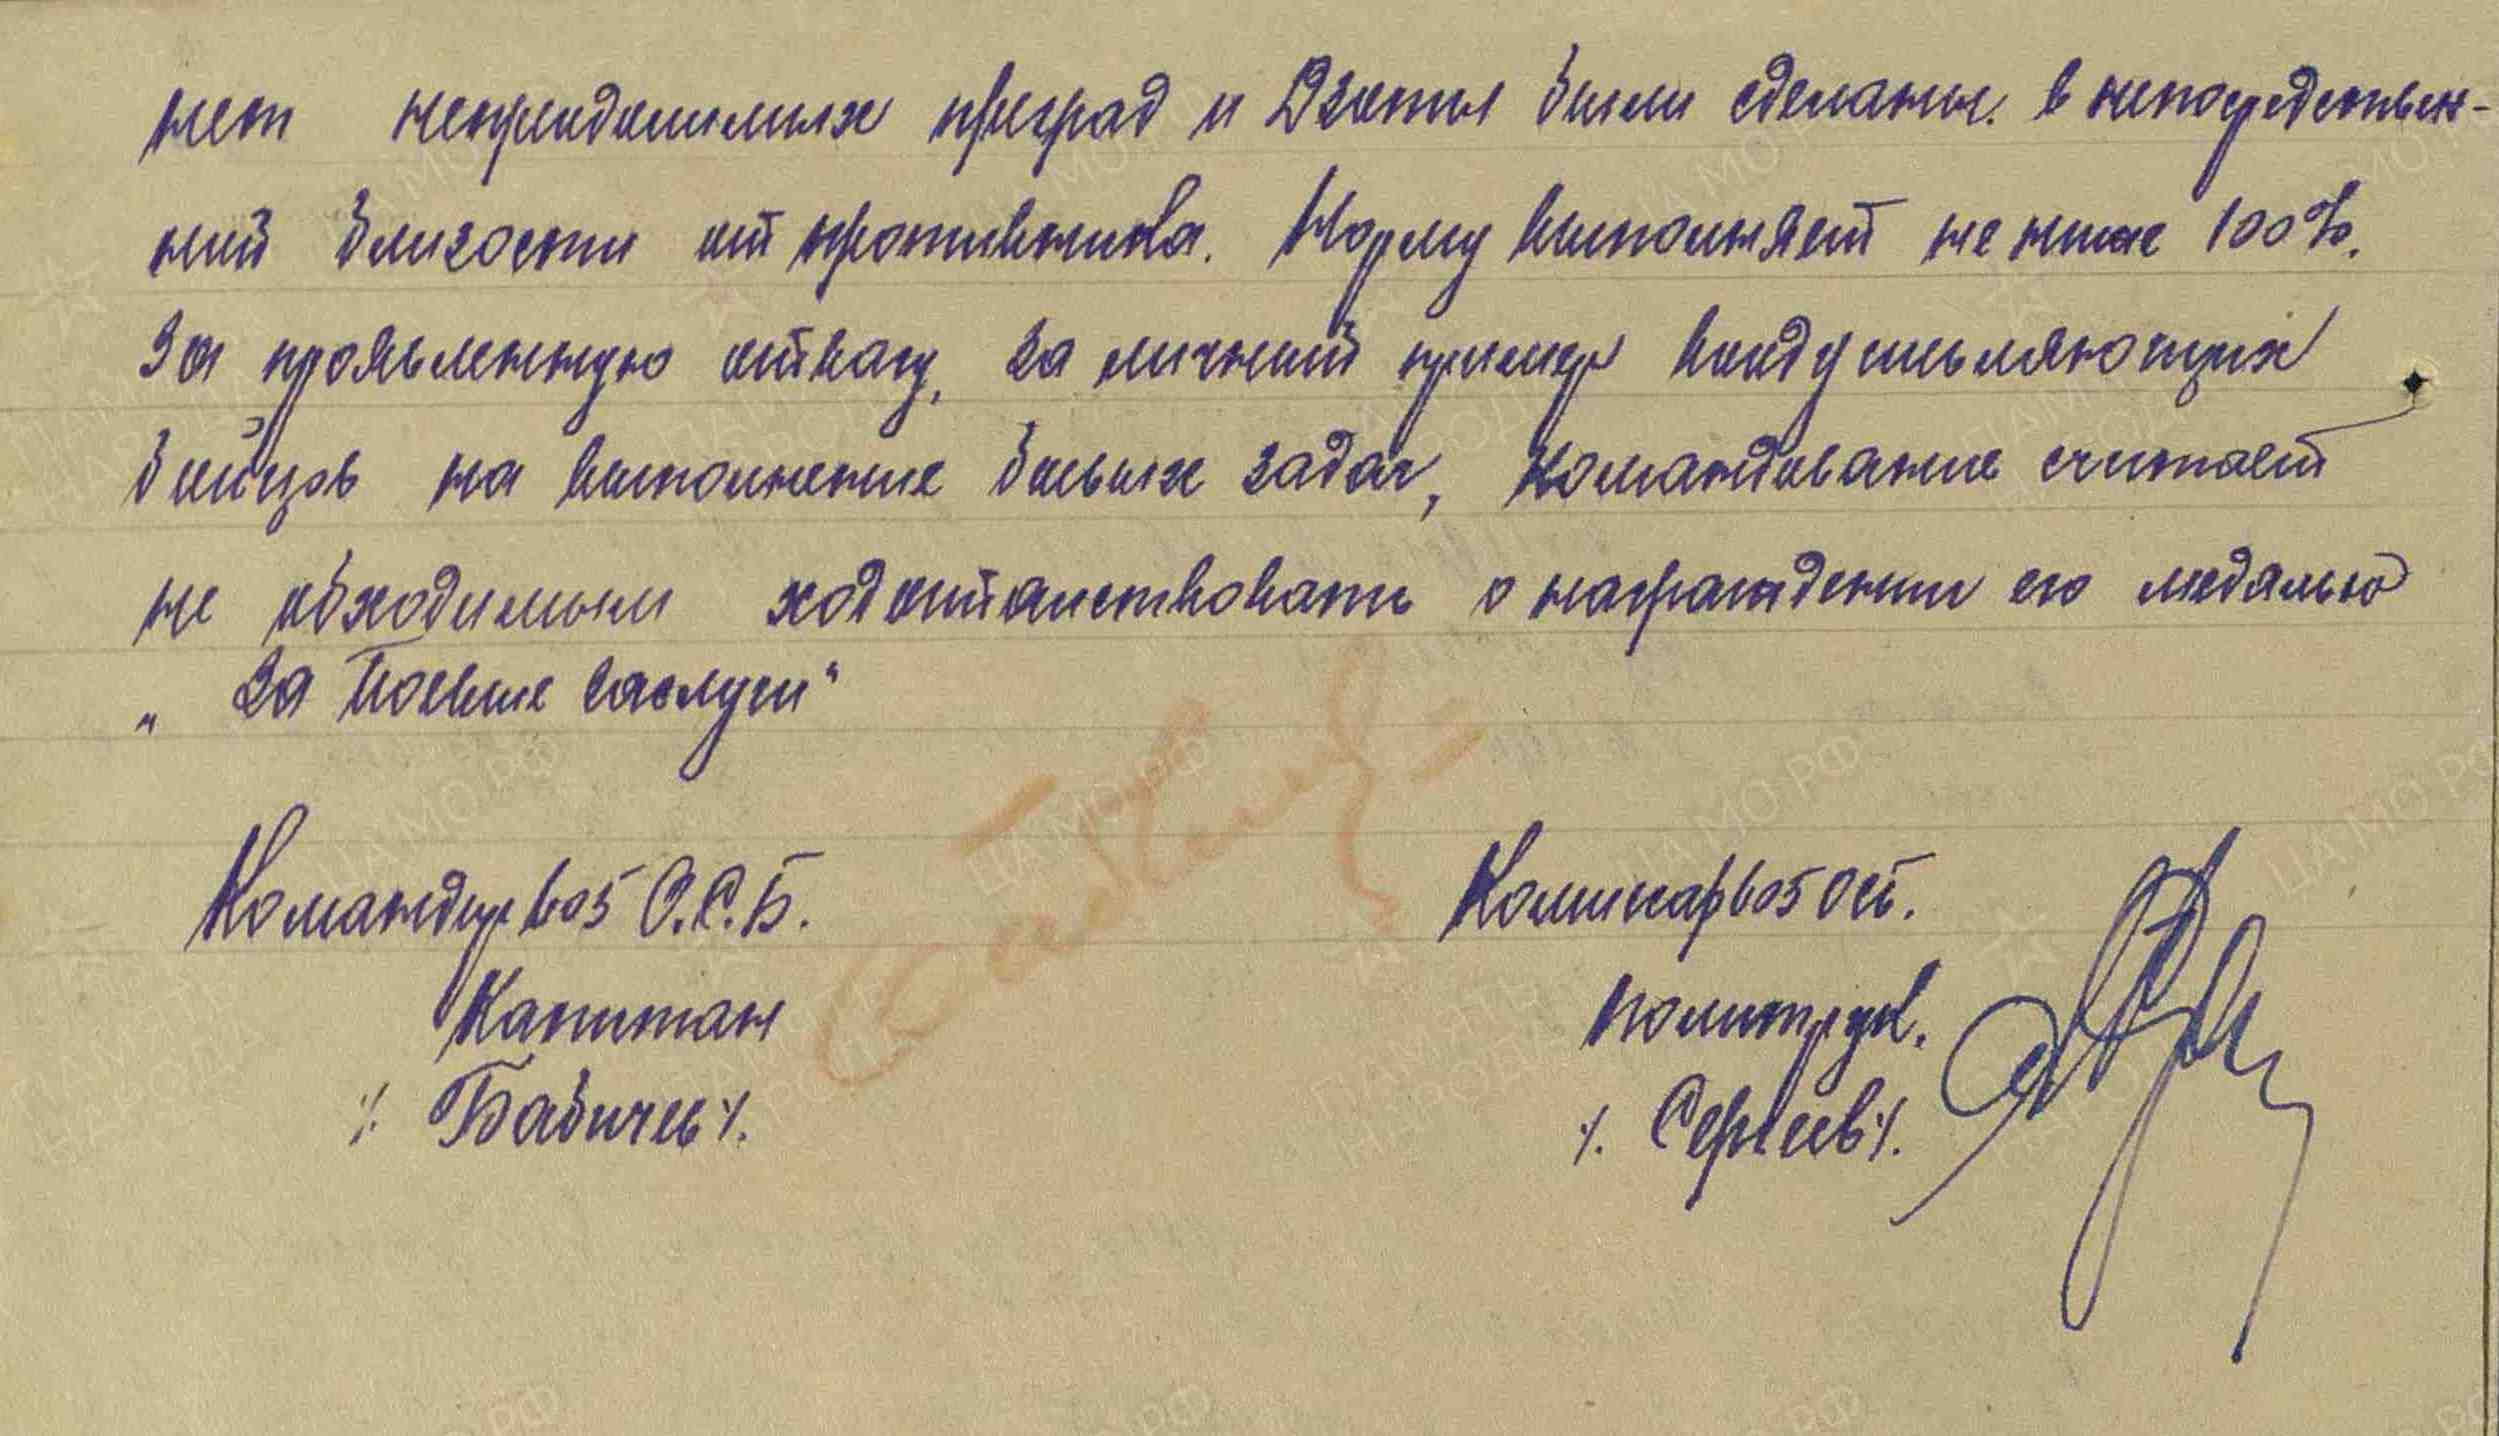 нет непреодолимых преград и Дзоты были сделаны. в непосредствен-
ной близости от противника. Норму выполняет не ниже 100%.
За проявленную отвагу, за личный пример воодушевляющих
бойцов на выполнение боевых задач, командование считает
не обходимым ходатайствовать о награждении его медалью
„За Боевые заслуги“
Командир 605 О.С.Б. Комиссар 605 ОСБ.
Капитан Политрук.
/. Бабичев /. /. Сергеев /.
ПАМЯТЬ НАРОДА
ЦА МО РФ